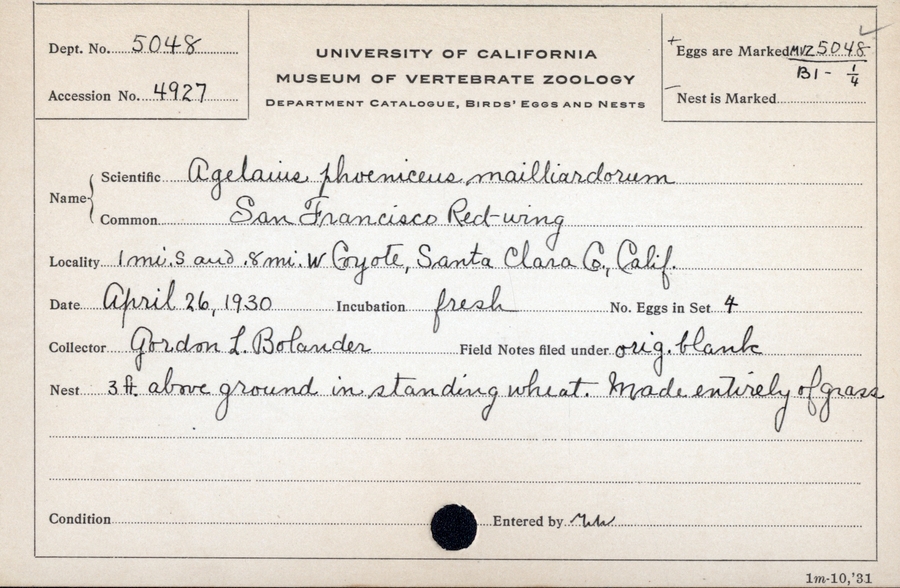 Dept. No. 5048
Accession No. 4927
UNIVERSITY OF CALIFORNIA
MUSEUM OF VERTEBRATE ZOOLOGY
DEPARTMENT CATALOGUE, BIRDS' EGGS AND NESTS
+ Eggs are Marked MVZ 5048
B1 - 1/4
- Nest is Marked
Name { Scientific Agelaius phoeniceus mailliardorum
Common San Francisco Red-wing
Locality 1 mi. S and .8 mi. W Coyote, Santa Clara Co., Calif.
Date April 26, 1930 Incubation fresh No. Eggs in Set 4
Collector Gordon L. Bolander Field Notes filed under orig. blank
Nest 3 ft. above ground in standing wheat. Made entirely of grass
Condition Entered by
1m-10,'31